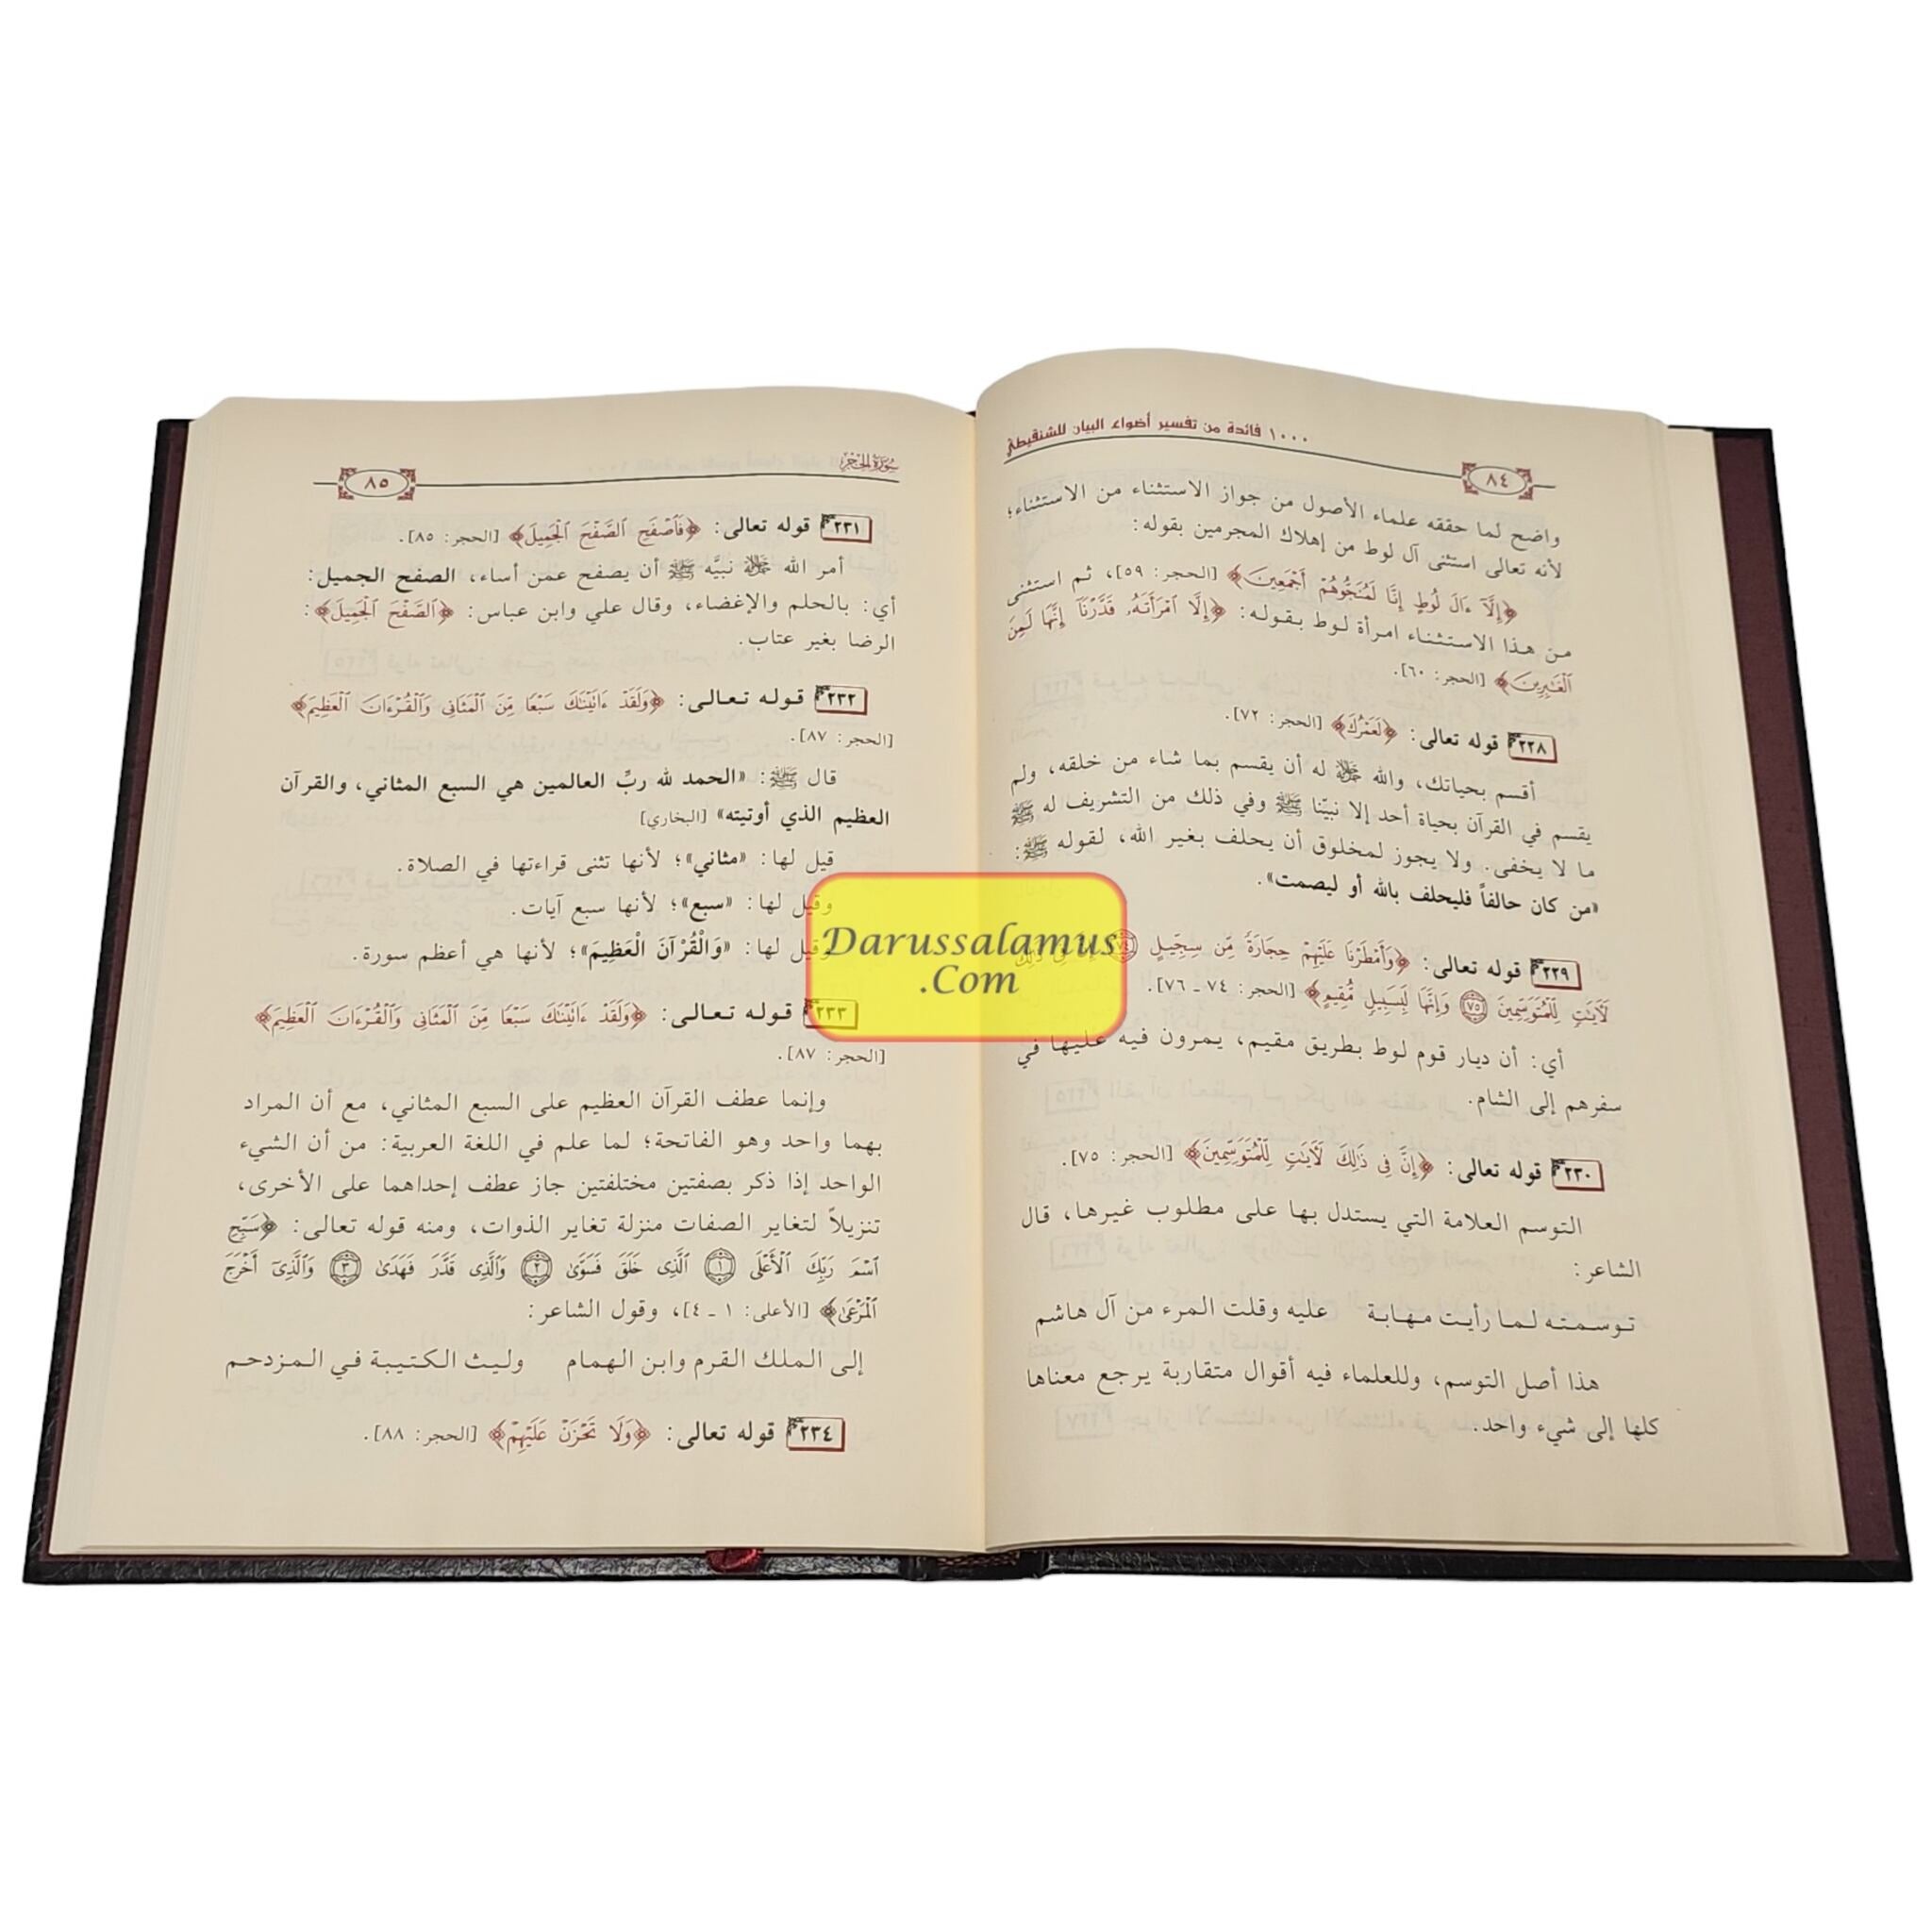 ١٠٠٠ فائدة من تفسير أضواء البيان للشنقيطي
٨٤
واضح لما حققه علماء الأصول من جواز الاستثناء من الاستثناء؛
لأنه تعالى استثنى آل لوط من إهلاك المجرمين بقوله:
﴿إِلَّآ ءَالَ لُوطٍ إِنَّا لَمُنَجُّوهُمْ أَجْمَعِينَ﴾ [الحجر: ٥٩]، ثم استثنى
من هذا الاستثناء امرأة لوط بقوله: ﴿إِلَّا ٱمْرَأَتَهُۥ قَدَّرْنَآ إِنَّهَا لَمِنَ
ٱلْغَٰبِرِينَ﴾ [الحجر: ٦٠].
٢٢٨ قوله تعالى: ﴿لَعَمْرُكَ﴾ [الحجر: ٧٢].
أقسم بحياتك، والله ﷻ له أن يقسم بما شاء من خلقه، ولم
يقسم في القرآن بحياة أحد إلا نبيّنا ﷺ وفي ذلك من التشريف له ﷺ
ما لا يخفى. ولا يجوز لمخلوق أن يحلف بغير الله، لقوله ﷺ:
«من كان حالفاً فليحلف بالله أو ليصمت».
٢٢٩ قوله تعالى: ﴿وَأَمْطَرْنَا عَلَيْهِمْ حِجَارَةً مِّن سِجِّيلٍ ٧٤ إِنَّ فِى ذَٰلِكَ
لَآيَٰتٍ لِّلْمُتَوَسِّمِينَ ٧٥ وَإِنَّهَا لَبِسَبِيلٍ مُّقِيمٍ﴾ [الحجر: ٧٤ ـ ٧٦].
أي: أن ديار قوم لوط بطريق مقيم، يمرون فيه عليها في
سفرهم إلى الشام.
٢٣٠ قوله تعالى: ﴿إِنَّ فِى ذَٰلِكَ لَآيَٰتٍ لِّلْمُتَوَسِّمِينَ﴾ [الحجر: ٧٥].
التوسم العلامة التي يستدل بها على مطلوب غيرها، قال
الشاعر:
توسمته لما رأيت مهابة عليه وقلت المرء من آل هاشم
هذا أصل التوسم، وللعلماء فيه أقوال متقاربة يرجع معناها
كلها إلى شيء واحد.
سُورَةُ الحِجْرِ
٨٥
٢٣١ قوله تعالى: ﴿فَٱصْفَحِ ٱلصَّفْحَ ٱلْجَمِيلَ﴾ [الحجر: ٨٥].
أمر الله ﷻ نبيَّه ﷺ أن يصفح عمن أساء، الصفح الجميل:
أي: بالحلم والإغضاء، وقال علي وابن عباس: ﴿ٱلصَّفْحَ ٱلْجَمِيلَ﴾:
الرضا بغير عتاب.
٢٣٢ قوله تعالى: ﴿وَلَقَدْ ءَاتَيْنَٰكَ سَبْعًا مِّنَ ٱلْمَثَانِى وَٱلْقُرْءَانَ ٱلْعَظِيمَ﴾
[الحجر: ٨٧].
قال ﷺ: «الحمد لله ربِّ العالمين هي السبع المثاني، والقرآن
العظيم الذي أوتيته» [البخاري]
قيل لها: «مثاني»؛ لأنها تثنى قراءتها في الصلاة.
وقيل لها: «سبع»؛ لأنها سبع آيات.
وقيل لها: «وَالْقُرْآنَ الْعَظِيمَ»؛ لأنها هي أعظم سورة.
٢٣٣ قوله تعالى: ﴿وَلَقَدْ ءَاتَيْنَٰكَ سَبْعًا مِّنَ ٱلْمَثَانِى وَٱلْقُرْءَانَ ٱلْعَظِيمَ﴾
[الحجر: ٨٧].
وإنما عطف القرآن العظيم على السبع المثاني، مع أن المراد
بهما واحد وهو الفاتحة؛ لما علم في اللغة العربية: من أن الشيء
الواحد إذا ذكر بصفتين مختلفتين جاز عطف إحداهما على الأخرى،
تنزيلاً لتغاير الصفات منزلة تغاير الذوات، ومنه قوله تعالى: ﴿سَبِّحِ
ٱسْمَ رَبِّكَ ٱلْأَعْلَى ١ ٱلَّذِى خَلَقَ فَسَوَّىٰ ٢ وَٱلَّذِى قَدَّرَ فَهَدَىٰ ٣ وَٱلَّذِىٓ أَخْرَجَ
ٱلْمَرْعَىٰ﴾ [الأعلى: ١ ـ ٤]، وقول الشاعر:
إلى الملك القرم وابن الهمام وليث الكتيبة في المزدحم
٢٣٤ قوله تعالى: ﴿وَلَا تَحْزَنْ عَلَيْهِمْ﴾ [الحجر: ٨٨].
Darussalamus
.Com